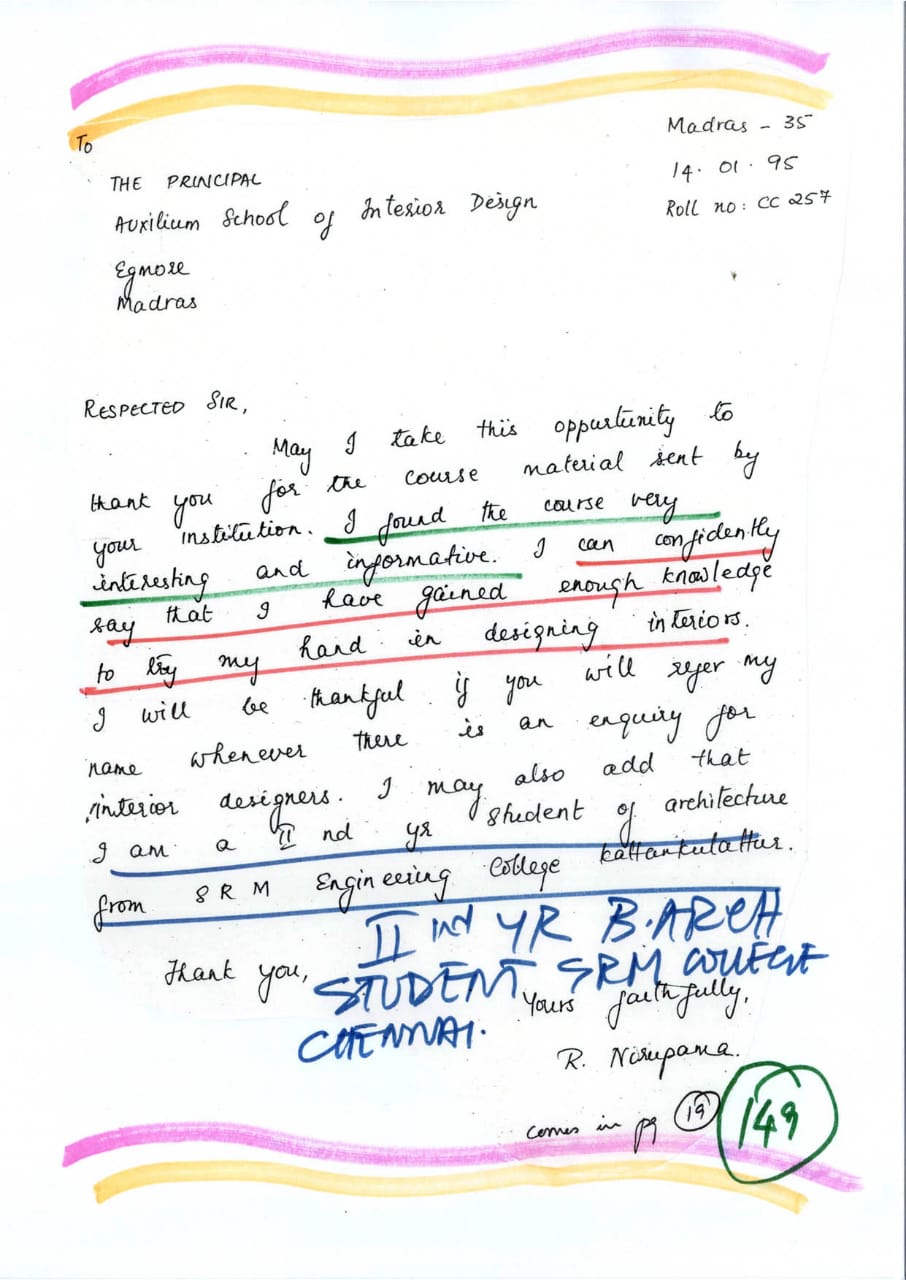 To
Madras - 35
14. 01. 95
Roll no: CC 257
THE PRINCIPAL
Auxilium School of Interior Design
Egmore
Madras
RESPECTED SIR,
May I take this oppurtunity to
thank you for the course material sent by
your institution. I found the course very
interesting and informative. I can confidently
say that I have gained enough knowledge
to try my hand in designing interiors.
I will be thankful if you will refer my
name whenever there is an enquiry for
interior designers. I may also add that
I am a II nd yr student of architecture
from S R M Engineering College kattankulattur.
II nd YR B.ARCH
STUDENT SRM COLLEGE
CHENNAI.
Thank you,
Yours faithfully,
R. Nirupama.
comes in pg 19
149